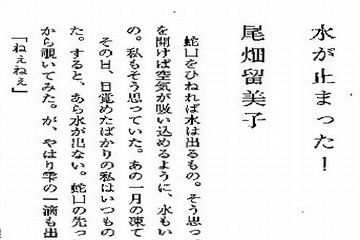 水が止まった！
尾畑留美子
蛇口をひねれば水は出るもの。そう思っ
を開けば空気が吸い込めるように、水もい
の。私もそう思っていた。あの一月の凍て
その日、目覚めたばかりの私はいつもの
た。すると、あら水が出ない。蛇口の先っ
から覗いてみた。が、やはり雫の一滴も出
「ねぇねぇ」